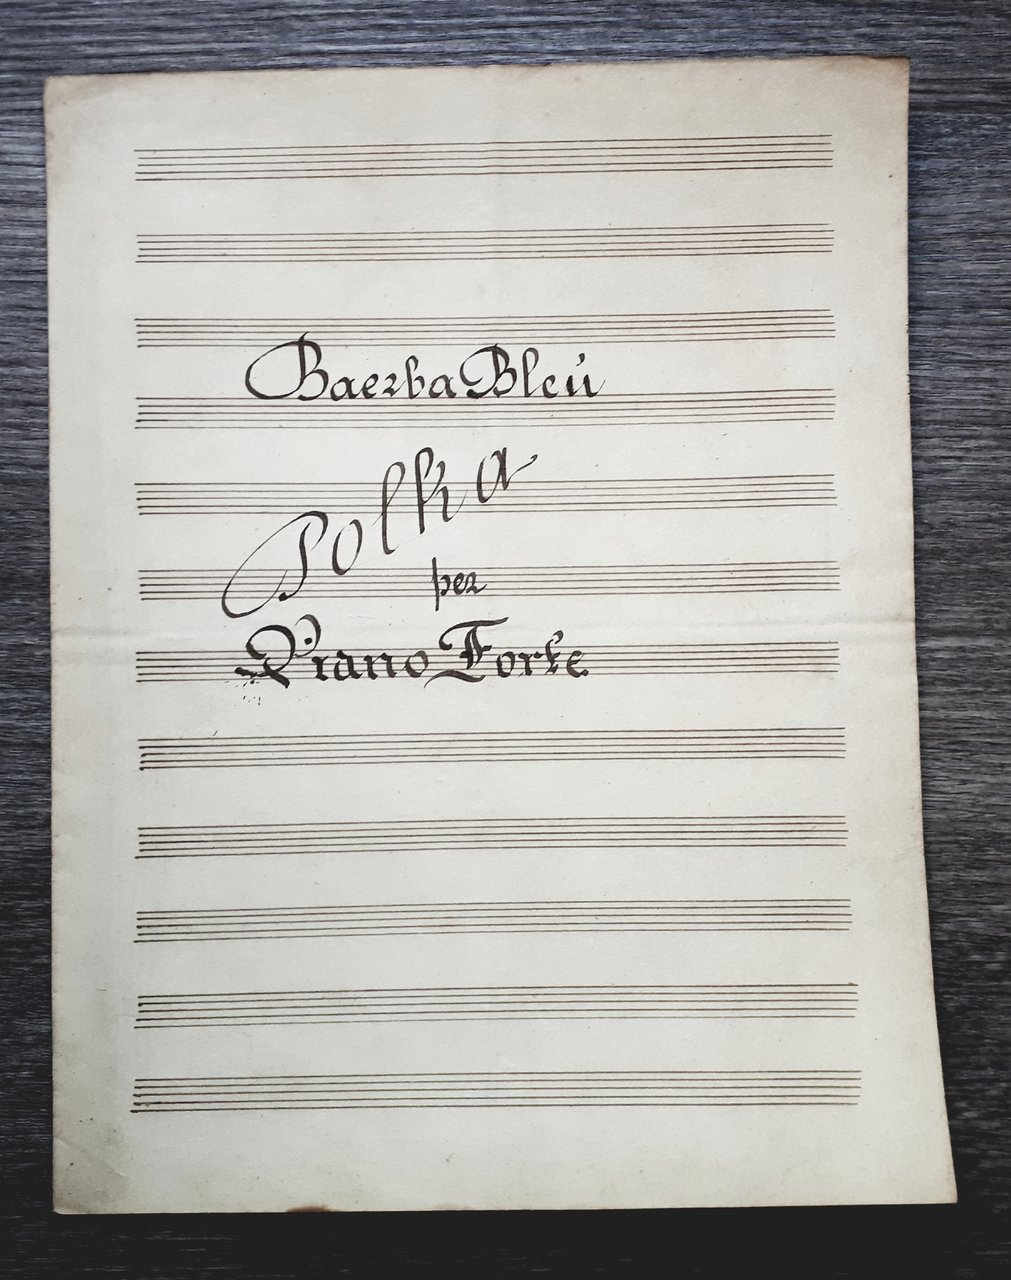 Baerba Bleú
Polka
per
Piano Forte